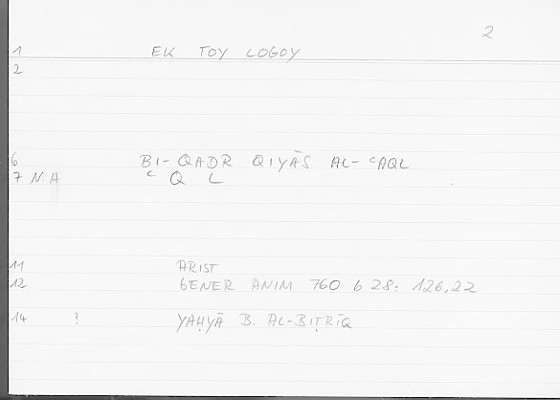 2
1 EK TOY LOGOY
2
6 BI- QADR QIYĀS AL- ʿAQL
7 N A ʿ Q L
11 ARIST
12 GENER ANIM 760 b 28: 126,22
14 ? YAḤYĀ B. AL-BIṬRĪQ